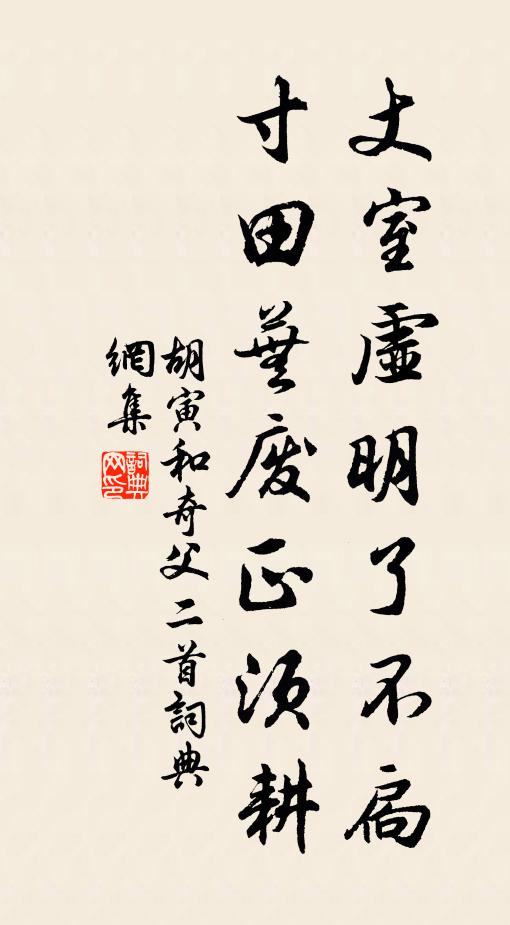 丈室虛明了不扃
寸田蕪廢正須耕
胡寅和奇父二首詞典
網集
詞典网印